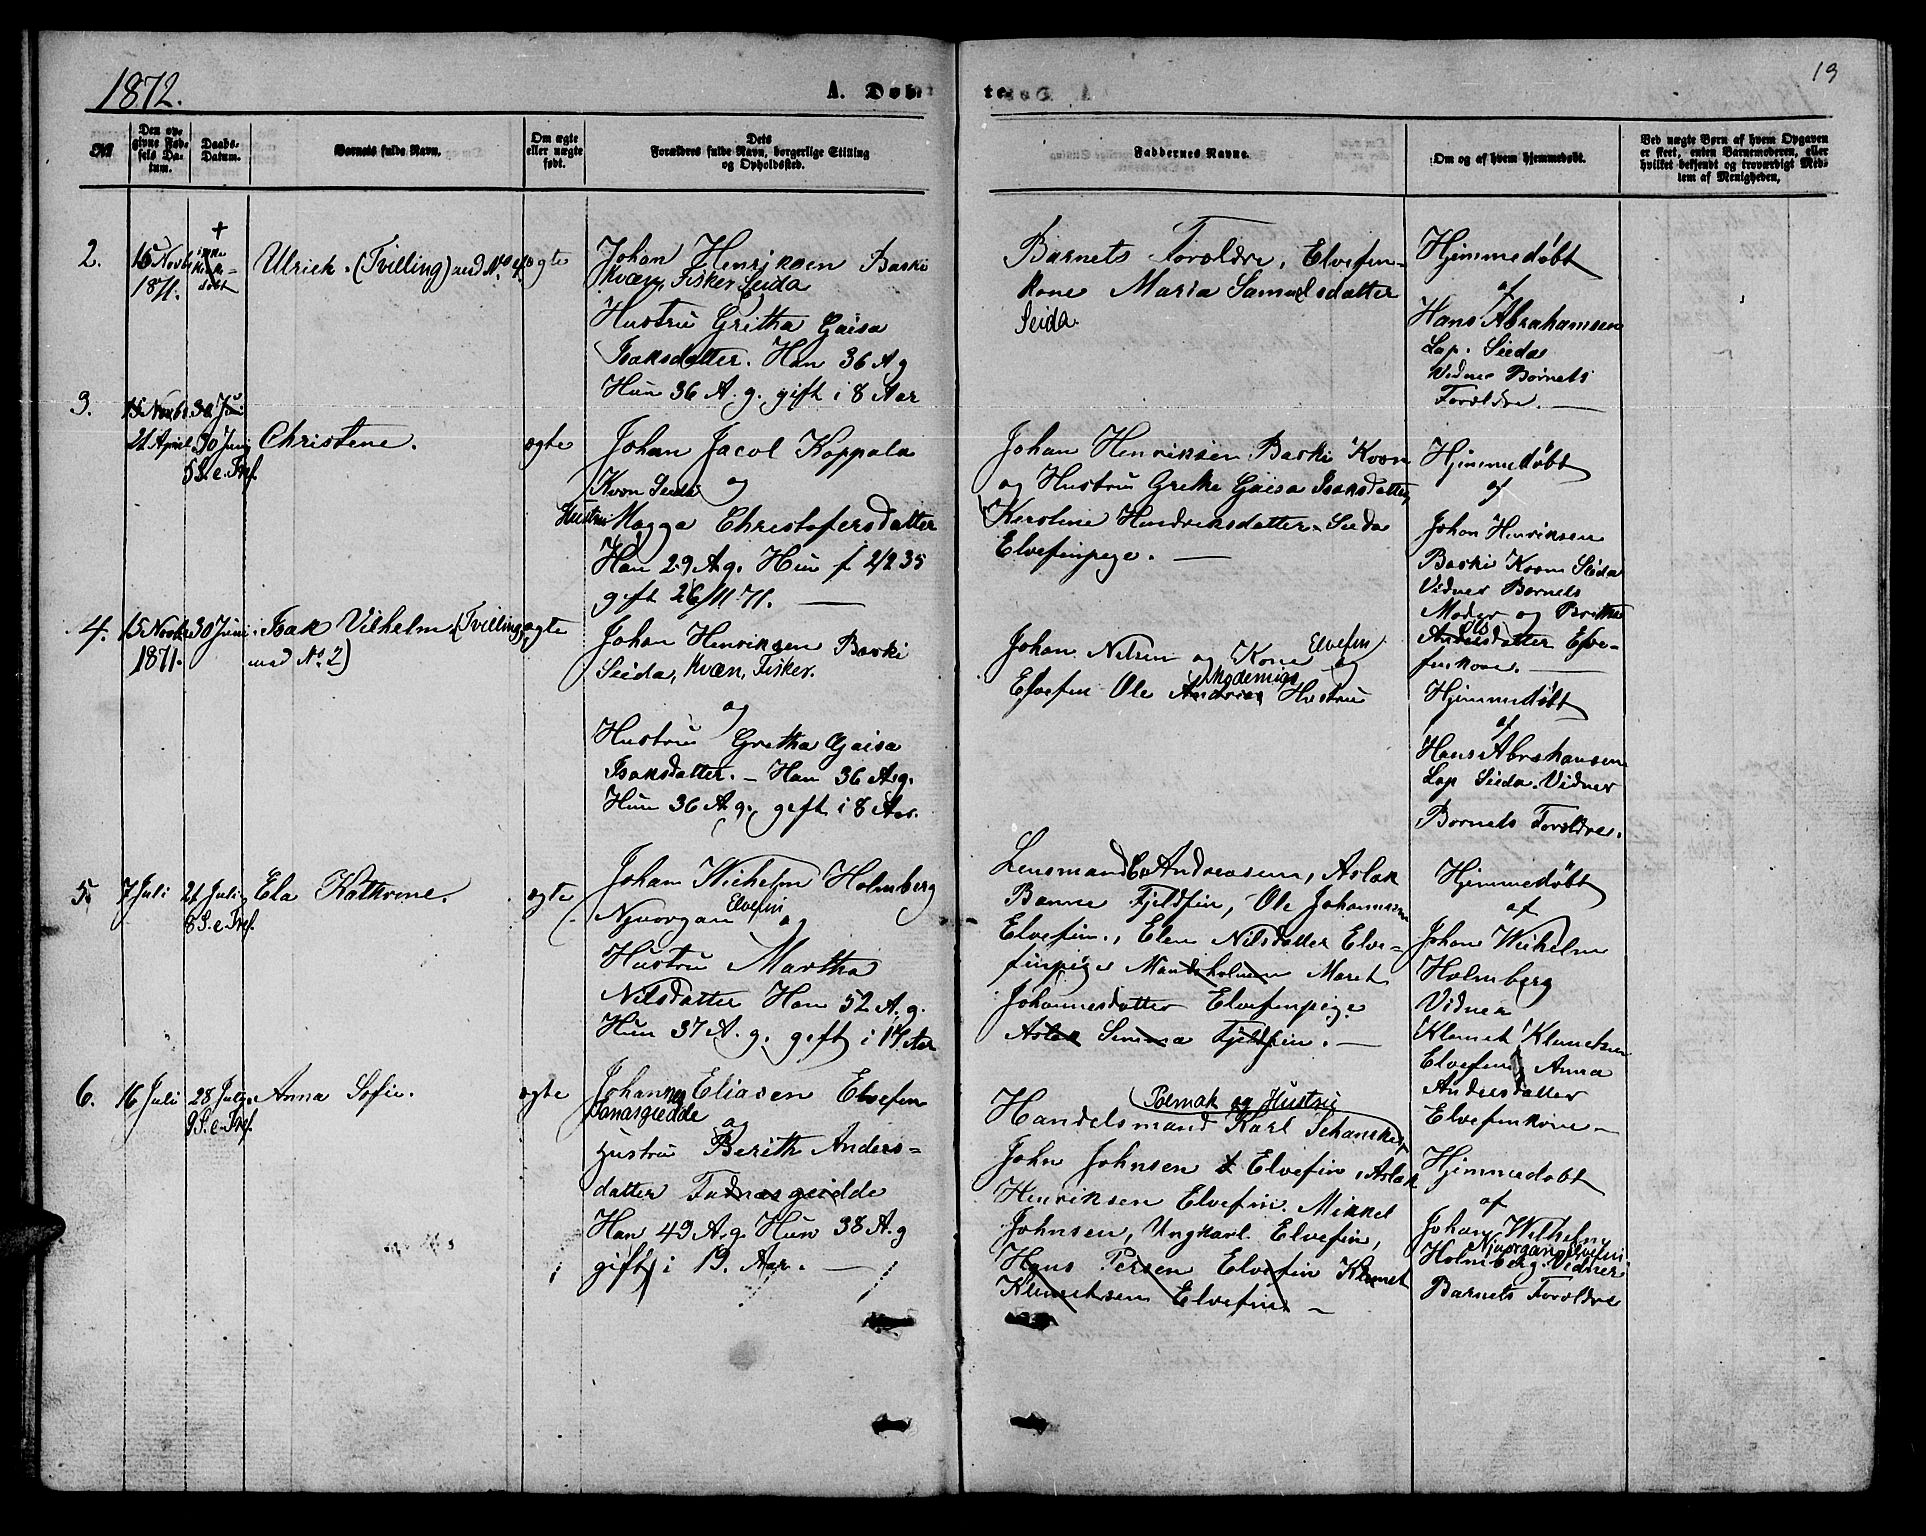 1872.
A. Døb
te
19
No
Den opgivne Fødsels Datum.
Daabs-Datum.
Barnets fulde Navn.
Om ægte eller uægte født.
Dets Forældres fulde Navn, borgerlige Stilling og Opholdssted.
Faddernes Navne.
Om og af hvem hjemmedøbt.
Ved uægte Børn af hvem Opgaven er skeet, enten Barnemoderen, eller hvilket bekjendt og troværdigt Medlem af Menigheden.
2.
15 Novbr
1871.
+
ikke
døbt
Ulrich. (Tvilling) med No 4.
ægte
Johan Henriksen Baski
Kvæn, Fisker Seida
Hustru Gretha Gaisa
Isaksdatter. Han 36 A. g
Hun 36 A. g. gift i 8 Aar
Barnets Forældre, Elvefin-
kone Maria Samuelsdatter
Seida.
Hjemmedøbt
af
Hans Abrahamsen
Lap. Seida
Vidner Barnets
Forældre. —
3.
15 Novbr 30 Juni
21 April
30 Juni
5 S. e. Tref.
Christene.
ægte
Johan Jacob Koppala
Kvæn Seida og
Hustru Magga Christofersdatter
Han 29 A. g. Hun f 2/2 35
gift 26/11 71. —
Johan Henriksen Baski Kvæn
og Hustru Grethe Gaisa Isaksdatter,
Karoline Hendriksdatter Seida
Elvefinpige. —
Hjemmedøbt
af
Johan Henriksen
Baski Kvæn Seida
Vidner Barnets
Moder og Brithe
Ols
Andersdatter Elve-
finkone. —
4.
15 Novbr
1871.
30 Juni
Isak Vilhelm (Tvilling
med No. 2)
ægte
Johan Henriksen Baski
Seida, Kvæn, Fisker.
og
Hustru Gretha Gaisa
Isaksdatter. – Han 36 A. g.
Hun 36 A. g., gift i 8 Aar.
Johan Nilsen og Kone Elvefin og
Elvefin Ole Andreas Hustru
Hjemmedøbt
af
Hans Abrahamsen
Lap Seida. Vidner
Barnets Forældre.
5.
7 Juli
21 Juli
8 S. e. Tref.
Ela Kathrine.
ægte
Johan Wilhelm Holmberg
Njuorgan Elvefin og
Hustru Martha
Nilsdatter Han 52 A. g.
Hun 37 A. g. gift i 17 Aar
Lensmand C. Andreasen, Aslak
Banne Fjeldfin, Ole Johannesen
Elvefin., Elen Nilsdatter Elve-
finpige Mandsholmen Maret
Johannesdatter Elvefinpige
Aslak Fjeldfin. —
Hjemmedøbt
af
Johan Wilhelm
Holmberg
Vidner
Klemet Klemetsen
Elvefin Anna
Andersdatter
Elvefinkone –
6.
16 Juli
28 Juli
9 S. e. Tref.
Anna Sofie.
ægte
Johannes Eliasen Elvefin
og
Hustru Berith Anders-
datter
Han 49 A. g. Hun 38 A. g
gift i 19. Aar. —
Polmak og Hustru
Handelsmand Karl Schanske,
John Johnsen Elvefin, Aslak
Henriksen Elvefin. Mikkel
Johnsen, Ungkarl. Elvefin,
Hans Persen Elvefin Klemet
Klemetsen Elvefin –
Hjemmedøbt
af
Johan Wilhelm
Njuorgan Elvefin
Holmberg. Vidner
Barnets Forældre